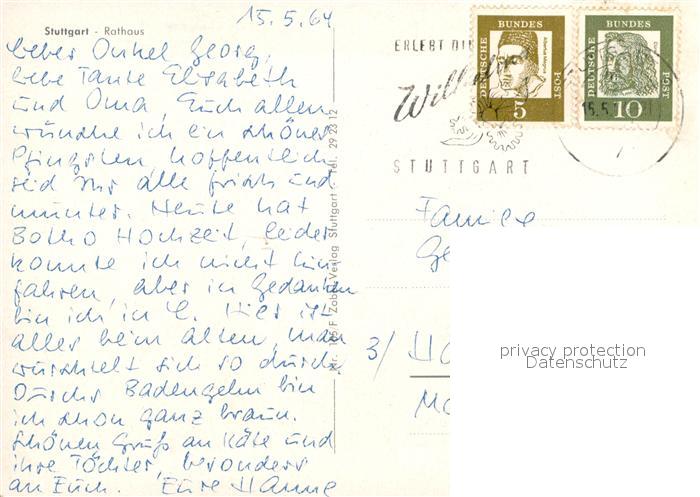 15.5.64
Stuttgart - Rathaus
Lieber Onkel Georg,
liebe Tante Elisabeth
und Oma, Euch allen
wünsche ich ein schönes
Pfingsten, hoffentlich
seid Ihr alle frisch und
munter. Heute hat
Botho Hochzeit, leider
konnte ich nicht hin
fahren, aber in Gedanken
bin ich in C. Hier ist
alles beim alten, man
wurschtelt sich so durch.
Durchs Badengehn bin
ich schon ganz braun.
Schönen Gruß an Käte und
ihre Töchter, besonders
an Euch. Eure Hanne
Zobel-Verlag Stuttgart - Tel. 29 23 12
DEUTSCHE BUNDES POST
5
DEUTSCHE BUNDES POST
10
ERLEBT DIE
STUTTGART
15.5.
Familie
Ge
3/ Ha
privacy protection
Datenschutz